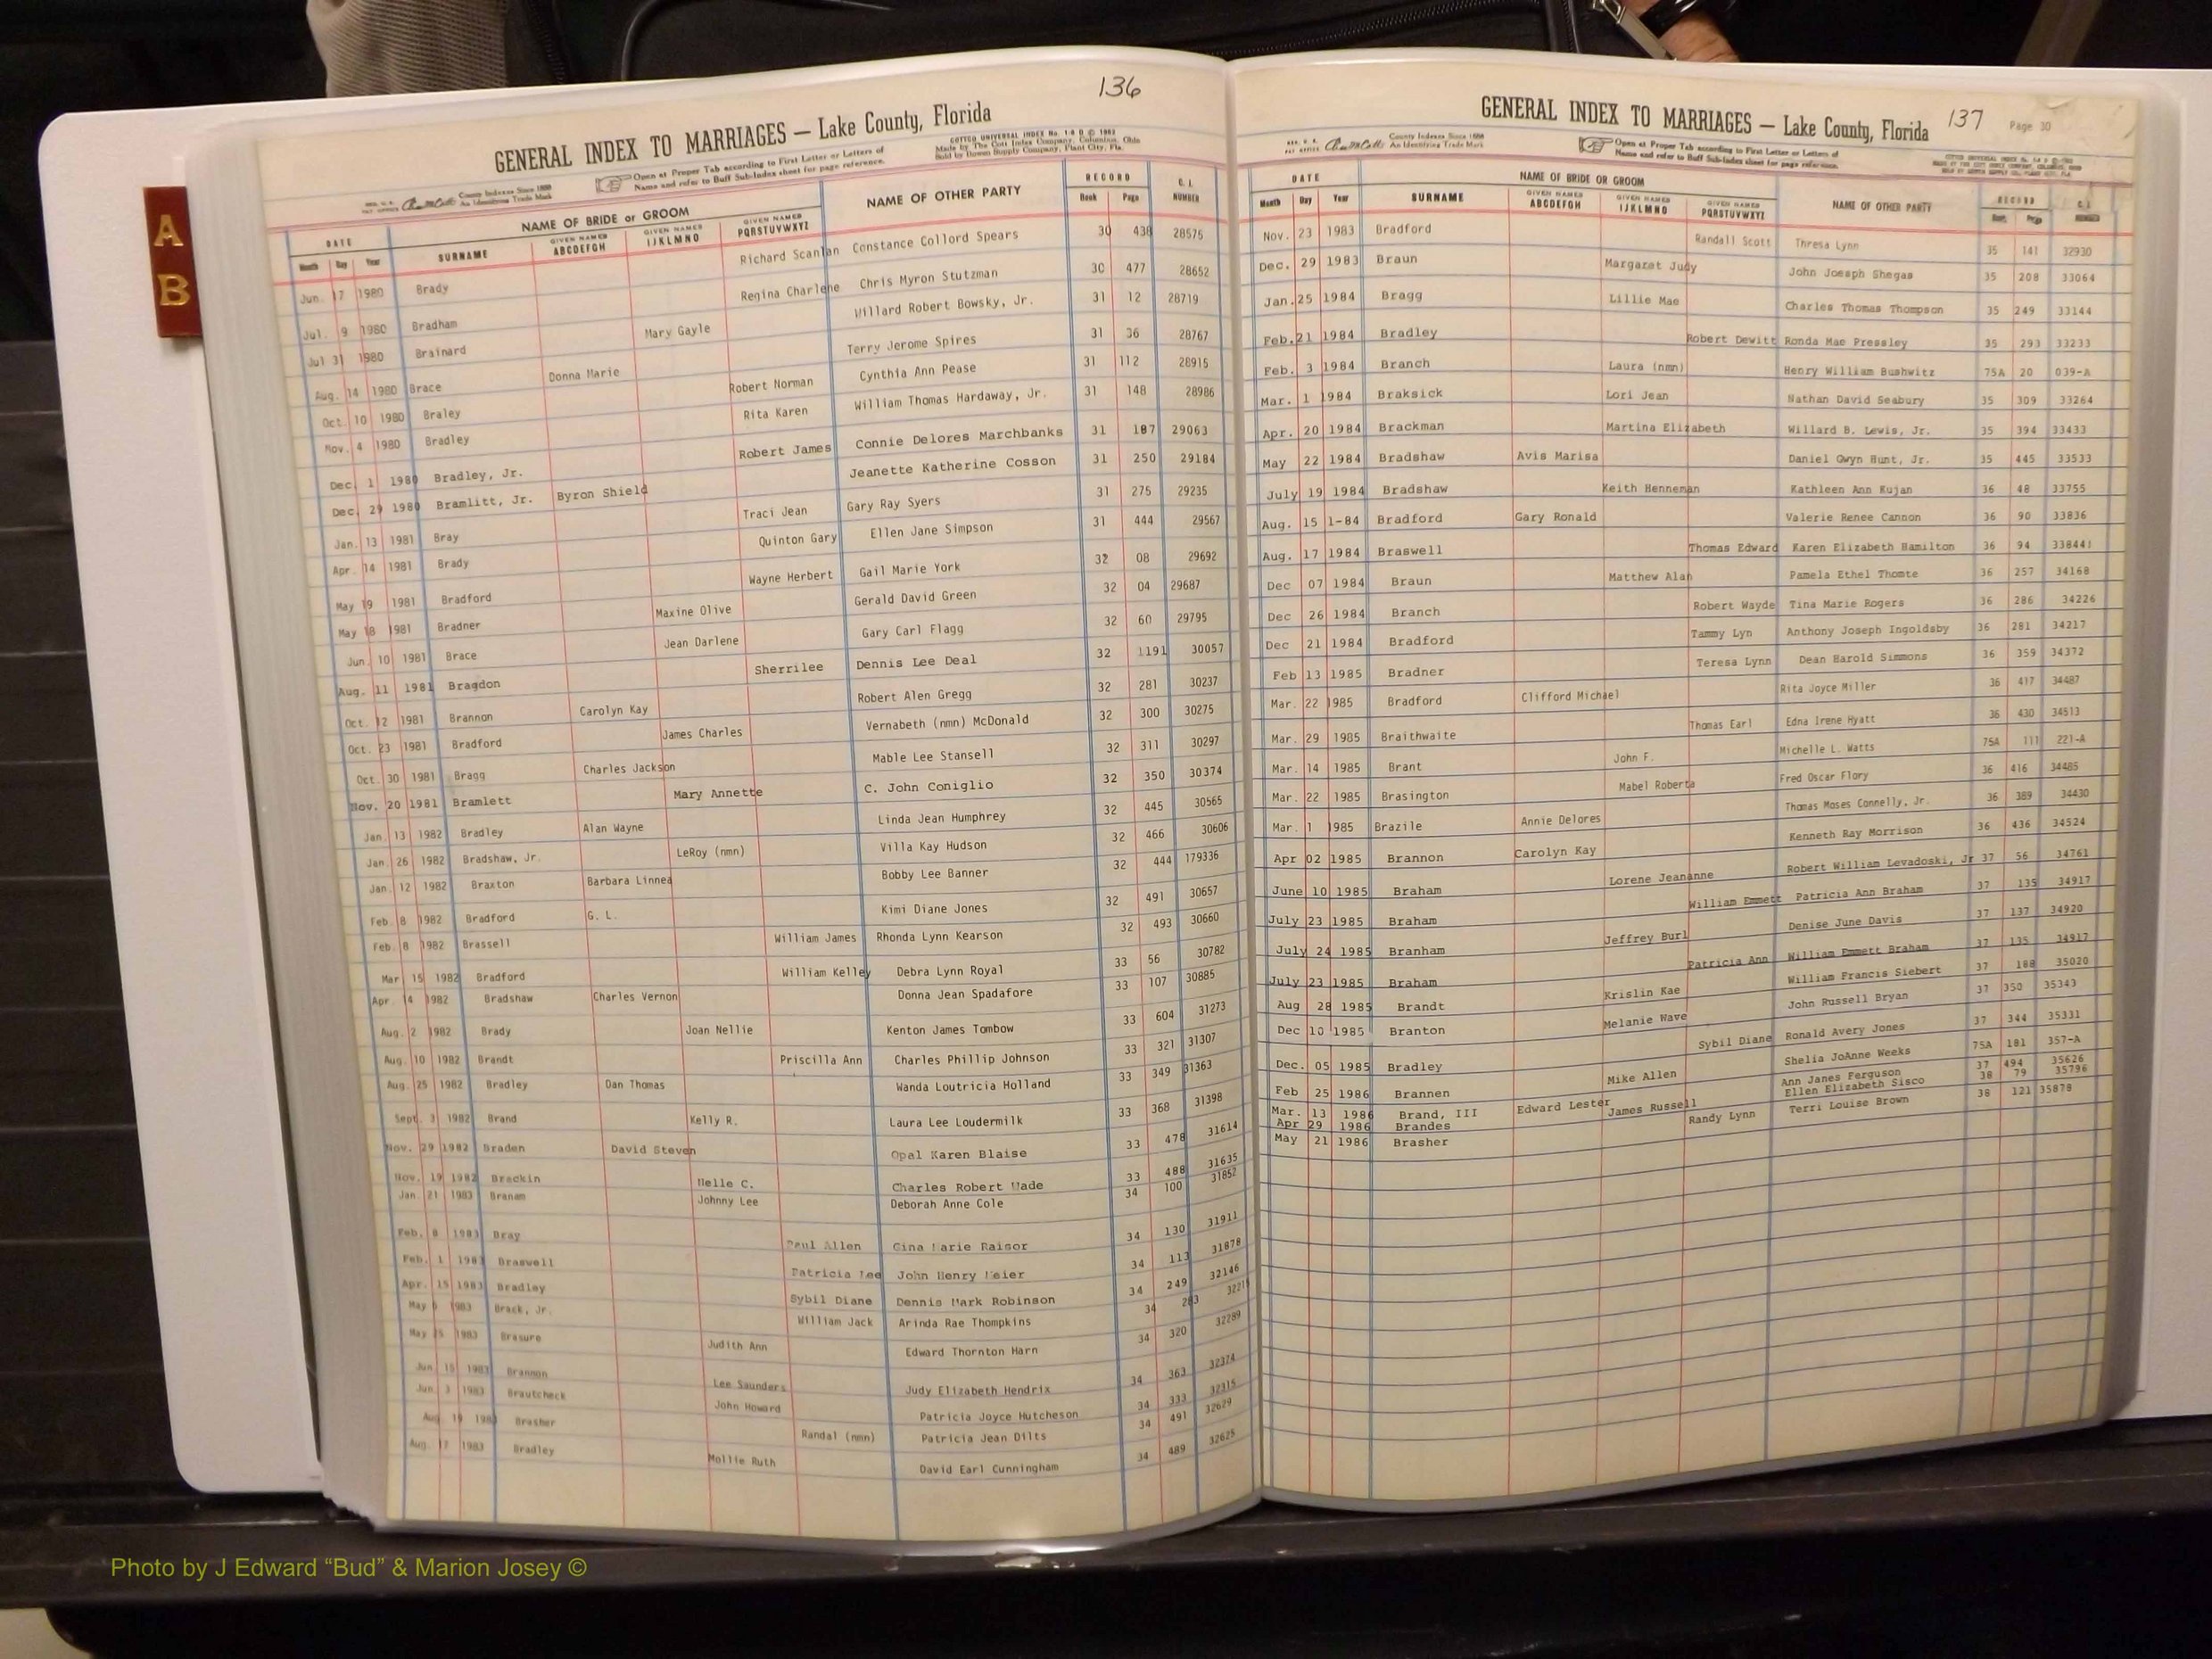 136
GENERAL INDEX TO MARRIAGES — Lake County, Florida
COTTCO UNIVERSAL INDEX No. 1-8 D © 1962
Made by The Cott Index Company, Columbus, Ohio
Sold by Bowen Supply Company, Plant City, Fla.
County Indexes Since 1888
An Identifying Trade Mark
Open at Proper Tab according to First Letter or Letters of
Name and refer to Buff Sub-Index sheet for page reference.
DATE NAME OF BRIDE or GROOM NAME OF OTHER PARTY RECORD C. I. NUMBER
Month Day Year SURNAME GIVEN NAMES ABCDEFGH GIVEN NAMES IJKLMNO GIVEN NAMES PQRSTUVWXYZ Book Page
Jun. 17 1980 Brady Richard Scanlan Constance Collord Spears 30 438 28575
Jul. 9 1980 Bradham Regina Charlene Chris Myron Stutzman 30 477 28652
Jul 31 1980 Brainard Mary Gayle Willard Robert Bowsky, Jr. 31 12 28719
Aug. 14 1980 Brace Donna Marie Terry Jerome Spires 31 36 28767
Oct. 10 1980 Braley Robert Norman Cynthia Ann Pease 31 112 28915
Nov. 4 1980 Bradley Rita Karen William Thomas Hardaway, Jr. 31 148 28986
Dec. 1 1980 Bradley, Jr. Robert James Connie Delores Marchbanks 31 187 29063
Dec. 29 1980 Bramlitt, Jr. Byron Shield Jeanette Katherine Cosson 31 250 29184
Jan. 13 1981 Bray Traci Jean Gary Ray Syers 31 275 29235
Apr. 14 1981 Brady Quinton Gary Ellen Jane Simpson 31 444 29567
May 19 1981 Bradford Wayne Herbert Gail Marie York 32 08 29692
May 18 1981 Bradner Maxine Olive Gerald David Green 32 04 29687
Jun. 10 1981 Brace Jean Darlene Gary Carl Flagg 32 60 29795
Aug. 11 1981 Bragdon Sherrilee Dennis Lee Deal 32 1191 30057
Oct. 12 1981 Brannon Carolyn Kay Robert Alen Gregg 32 281 30237
Oct. 23 1981 Bradford James Charles Vernabeth (nmn) McDonald 32 300 30275
Oct. 30 1981 Bragg Charles Jackson Mable Lee Stansell 32 311 30297
Nov. 20 1981 Bramlett Mary Annette C. John Coniglio 32 350 30374
Jan. 13 1982 Bradley Alan Wayne Linda Jean Humphrey 32 445 30565
Jan. 26 1982 Bradshaw, Jr. LeRoy (nmn) Villa Kay Hudson 32 466 30606
Jan. 12 1982 Braxton Barbara Linnea Bobby Lee Banner 32 444 179336
Feb. 8 1982 Bradford G. L. Kimi Diane Jones 32 491 30657
Feb. 8 1982 Brassell William James Rhonda Lynn Kearson 32 493 30660
Mar 15 1982 Bradford William Kelley Debra Lynn Royal 33 56 30782
Apr. 4 1982 Bradshaw Charles Vernon Donna Jean Spadafore 33 107 30885
Aug. 2 1982 Brady Joan Nellie Kenton James Tombow 33 604 31273
Aug. 10 1982 Brandt Priscilla Ann Charles Phillip Johnson 33 321 31307
Aug. 25 1982 Bradley Dan Thomas Wanda Loutricia Holland 33 349 31363
Sept. 3 1982 Brand Kelly R. Laura Lee Loudermilk 33 368 31398
Nov. 29 1982 Braden David Steven Opal Karen Blaise 33 478 31614
Nov. 19 1982 Brackin Nelle C. Charles Robert Wade 33 488 31635
Jan. 21 1983 Branam Johnny Lee Deborah Anne Cole 34 100 31852
Feb. 8 1983 Bray Paul Allen Gina Marie Raisor 34 130 31911
Feb. 1 1983 Braswell Patricia Lee John Henry Meier 34 113 31878
Apr. 15 1983 Bradley Sybil Diane Dennis Mark Robinson 34 249 32146
May 6 1983 Brack, Jr. William Jack Arinda Rae Thompkins 34 283
May 25 1983 Brasure Judith Ann Edward Thornton Harn 34 320 32289
Jun 15 1983 Brannon Lee Saunders Judy Elizabeth Hendrix 34 363 32374
Jun. 3 1983 Brautcheck John Howard Patricia Joyce Hutcheson 34 333 32315
Aug. 19 1983 Brasher Randal (nmn) Patricia Jean Dilts 34 491 32629
Aug. 17 1983 Bradley Mollie Ruth David Earl Cunningham 34 489 32625
137
Page 30
GENERAL INDEX TO MARRIAGES — Lake County, Florida
County Indexes Since 1888
An Identifying Trade Mark
Open at Proper Tab according to First Letter or Letters of
Name and refer to Buff Sub-Index sheet for page reference.
DATE NAME OF BRIDE OR GROOM NAME OF OTHER PARTY RECORD C. I. NUMBER
Month Day Year SURNAME GIVEN NAMES ABCDEFGH GIVEN NAMES IJKLMNO GIVEN NAMES PQRSTUVWXYZ Book Page
Nov. 23 1983 Bradford Randall Scott Thresa Lynn 35 141 32930
Dec. 29 1983 Braun Margaret Judy John Joesph Shegas 35 208 33064
Jan. 25 1984 Bragg Lillie Mae Charles Thomas Thompson 35 249 33144
Feb. 21 1984 Bradley Robert Dewitt Ronda Mae Pressley 35 293 33233
Feb. 3 1984 Branch Laura (nmn) Henry William Bushwitz 75A 20 039-A
Mar. 1 1984 Braksick Lori Jean Nathan David Seabury 35 309 33264
Apr. 20 1984 Brackman Martina Elizabeth Willard B. Lewis, Jr. 35 394 33433
May 22 1984 Bradshaw Avis Marisa Daniel Gwyn Hunt, Jr. 35 445 33533
July 19 1984 Bradshaw Keith Henneman Kathleen Ann Kujan 36 48 33755
Aug. 15 1-84 Bradford Gary Ronald Valerie Renee Cannon 36 90 33836
Aug. 17 1984 Braswell Thomas Edward Karen Elizabeth Hamilton 36 94 338441
Dec 07 1984 Braun Matthew Alan Pamela Ethel Thomte 36 257 34168
Dec 26 1984 Branch Robert Wayde Tina Marie Rogers 36 286 34226
Dec 21 1984 Bradford Tammy Lyn Anthony Joseph Ingoldsby 36 281 34217
Feb 13 1985 Bradner Teresa Lynn Dean Harold Simmons 36 359 34372
Mar. 22 1985 Bradford Clifford Michael Rita Joyce Miller 36 417 34487
Mar. 29 1985 Braithwaite Thomas Earl Edna Irene Hyatt 36 430 34513
Mar. 14 1985 Brant John F. Michelle L. Watts 75A 111 221-A
Mar. 22 1985 Brasington Mabel Roberta Fred Oscar Flory 36 416 34485
Mar. 1 1985 Brazile Annie Delores Thomas Moses Connelly, Jr. 36 389 34430
Apr 02 1985 Brannon Carolyn Kay Kenneth Ray Morrison 36 436 34524
June 10 1985 Braham Lorene Jeananne Robert William Levadoski, Jr 37 56 34761
July 23 1985 Braham William Emmett Patricia Ann Braham 37 135 34917
July 24 1985 Branham Jeffrey Burl Denise June Davis 37 137 34920
July 23 1985 Braham Patricia Ann William Emmett Braham 37 135 34917
Aug 28 1985 Brandt Krislin Kae William Francis Siebert 37 188 35020
Dec 10 1985 Branton Melanie Wave John Russell Bryan 37 350 35343
Dec. 05 1985 Bradley Sybil Diane Ronald Avery Jones 37 344 35331
Feb 25 1986 Brannen Mike Allen Shelia JoAnne Weeks 75A 181 357-A
Mar. 13 1986 Brand, III Edward Lester Ann Janes Ferguson 37 494 35626
Apr 29 1986 Brandes James Russell Ellen Elizabeth Sisco 38 79 35796
May 21 1986 Brasher Randy Lynn Terri Louise Brown 38 121 35878
A
B
Photo by J Edward “Bud” & Marion Josey ©